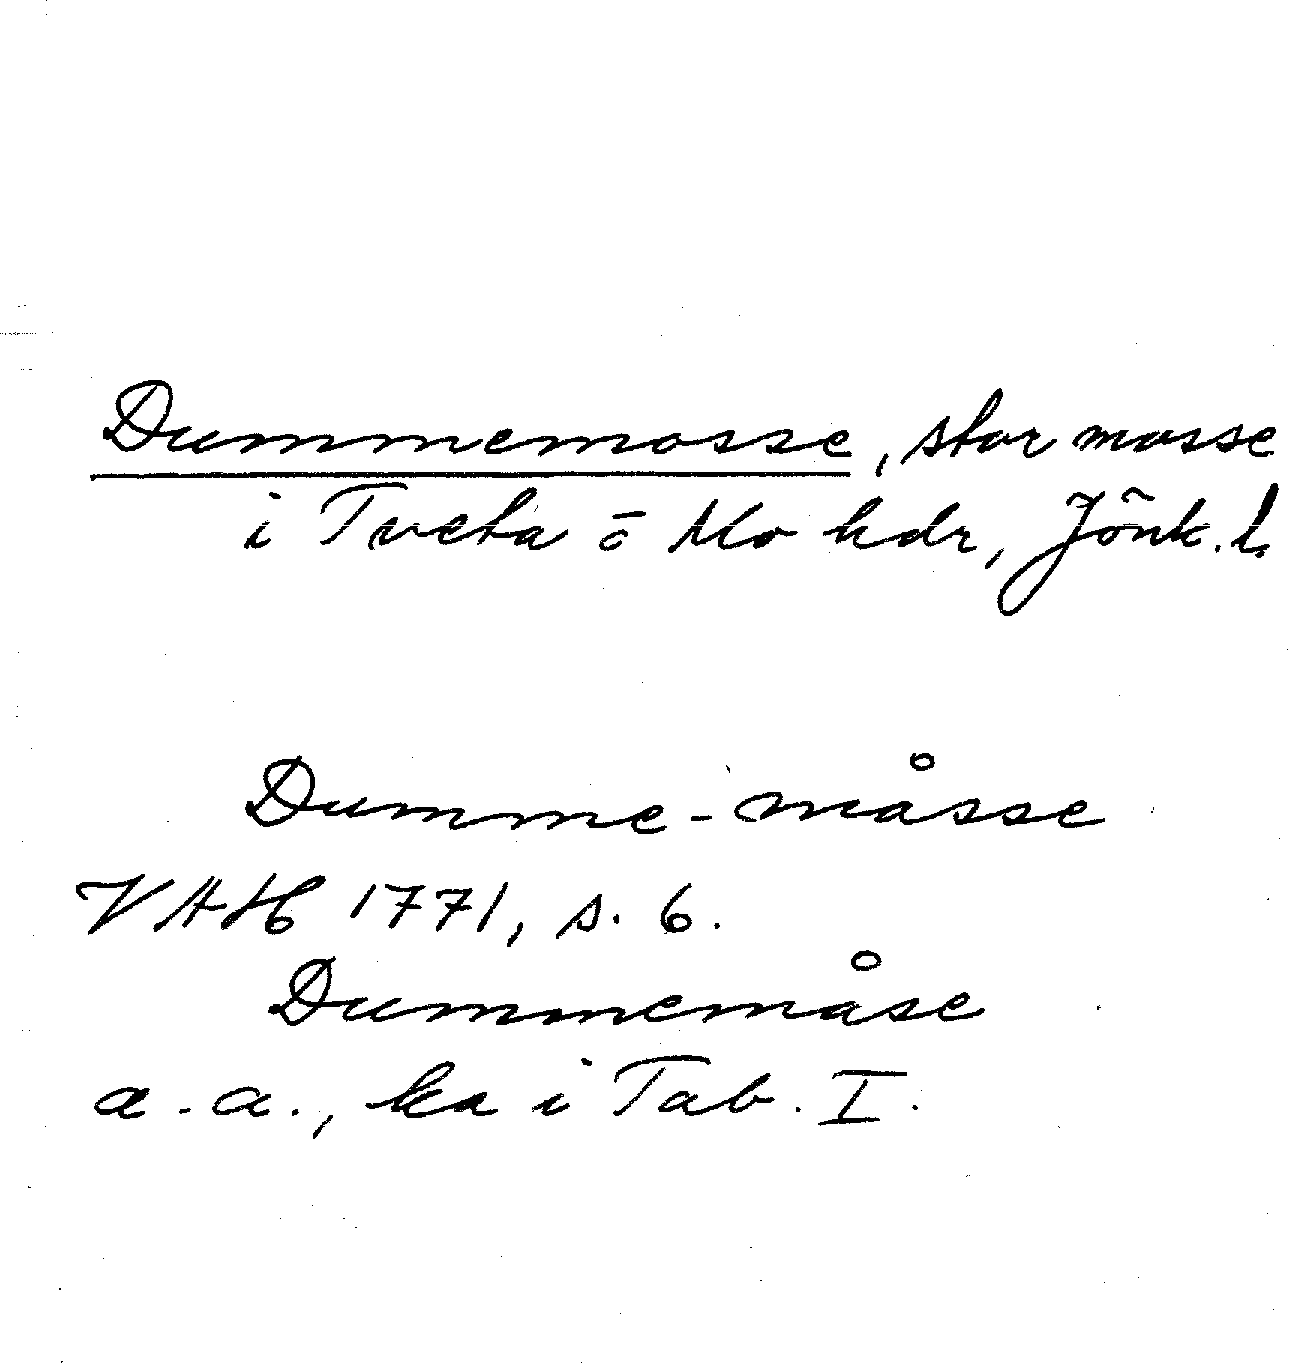 Dummemosse, stor mosse
i Tveta o Mo hdr, Jönk. l.
Dumme-måsse
VAH 1771, s. 6.
Dummemåse
a.a., ka i Tab. I.